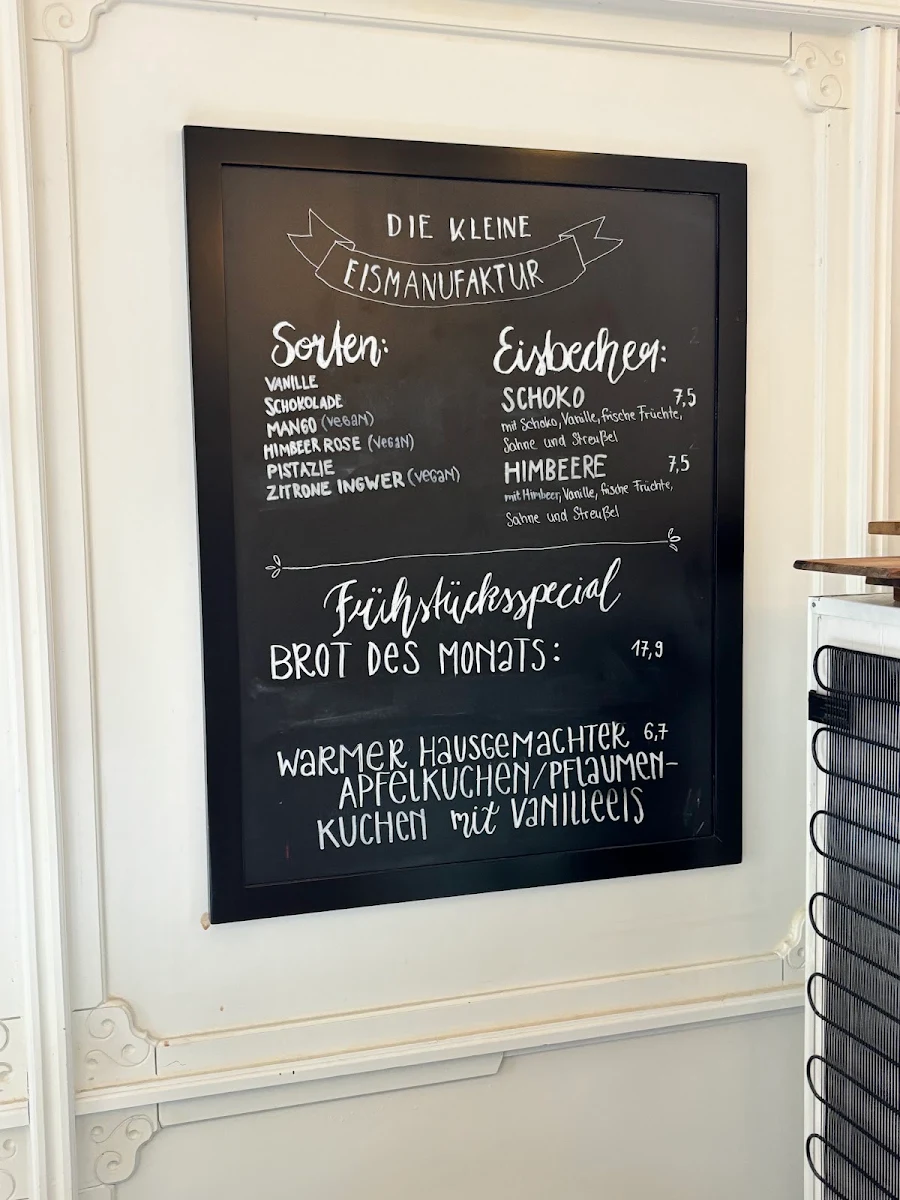 DIE KLEINE
EISMANUFAKTUR
Sorten:
VANILLE
SCHOKOLADE
MANGO (VEGAN)
HIMBEER ROSE (VEGAN)
PISTAZIE
ZITRONE INGWER (VEGAN)
Eisbecher:
SCHOKO 7,5
mit Schoko, Vanille, frische Früchte,
Sahne und Streußel
HIMBEERE 7,5
mit Himbeer, Vanille, frische Früchte,
Sahne und Streußel
Frühstücksspecial
BROT DES MONATS: 17,9
WARMER HAUSGEMACHTER 6,7
APFELKUCHEN/PFLAUMEN-
KUCHEN mit VANILLEEIS